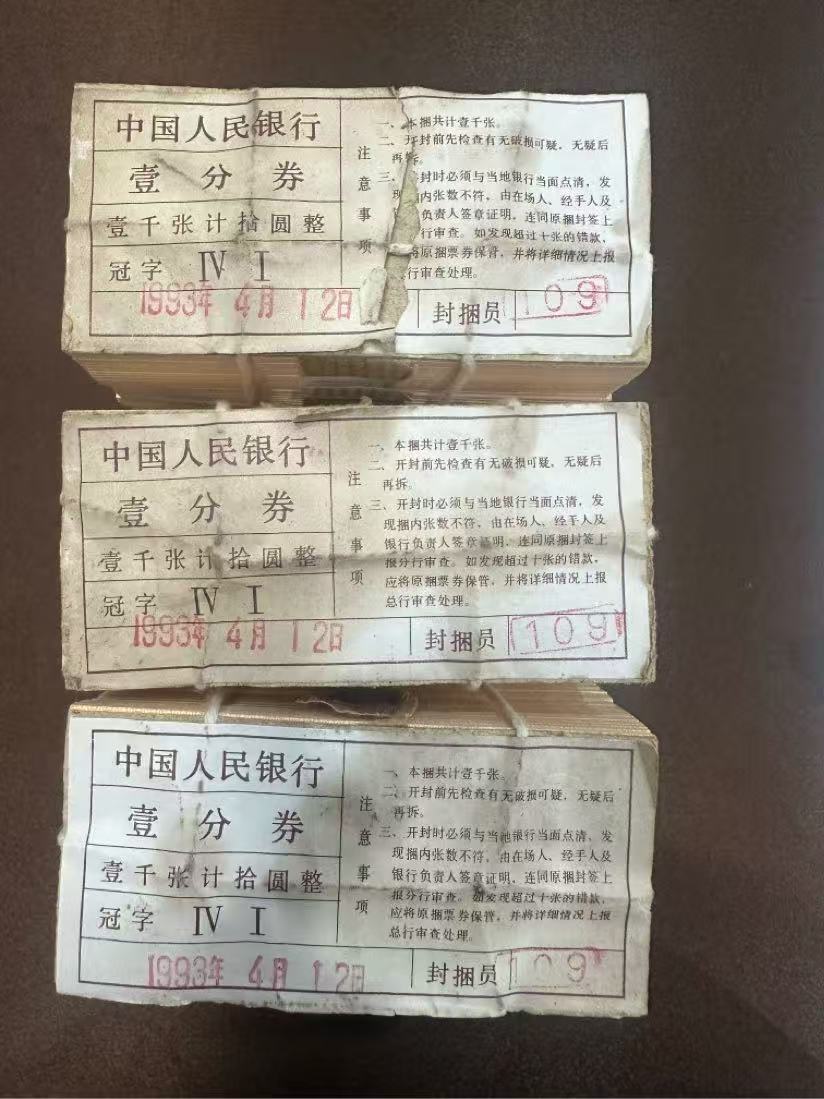 中国人民银行
壹分券
壹千张计拾圆整
冠字 Ⅳ Ⅰ
1993年 4月 12日
注意事项
一、本捆共计壹千张。
二、开封前先检查有无破损可疑，无疑后
再拆。
三、封时必须与当地银行当面点清，发
现内张数不符，由在场人、经手人及
负责人签章证明，连同原捆封签上
行审查。如发现超过十张的错款，
将原捆票券保管，并将详细情况上报
行审查处理。
封捆员 109
中国人民银行
壹分券
壹千张计拾圆整
冠字 Ⅳ Ⅰ
1993年 4月 12日
注意事项
一、本捆共计壹千张。
二、开封前先检查有无破损可疑，无疑后
再拆。
三、开封时必须与当地银行当面点清，发
现捆内张数不符，由在场人、经手人及
银行负责人签章证明，连同原捆封签上
报分行审查。如发现超过十张的错款，
应将原捆票券保管，并将详细情况上报
总行审查处理。
封捆员 109
中国人民银行
壹分券
壹千张计拾圆整
冠字 Ⅳ Ⅰ
1993年 4月 12日
注意事项
一、本捆共计壹千张。
二、开封前先检查有无破损可疑，无疑后
再拆。
三、开封时必须与当地银行当面点清，发
现捆内张数不符，由在场人、经手人及
银行负责人签章证明，连同原捆封签上
报分行审查。如发现超过十张的错款，
应将原捆票券保管，并将详细情况上报
总行审查处理。
封捆员 109